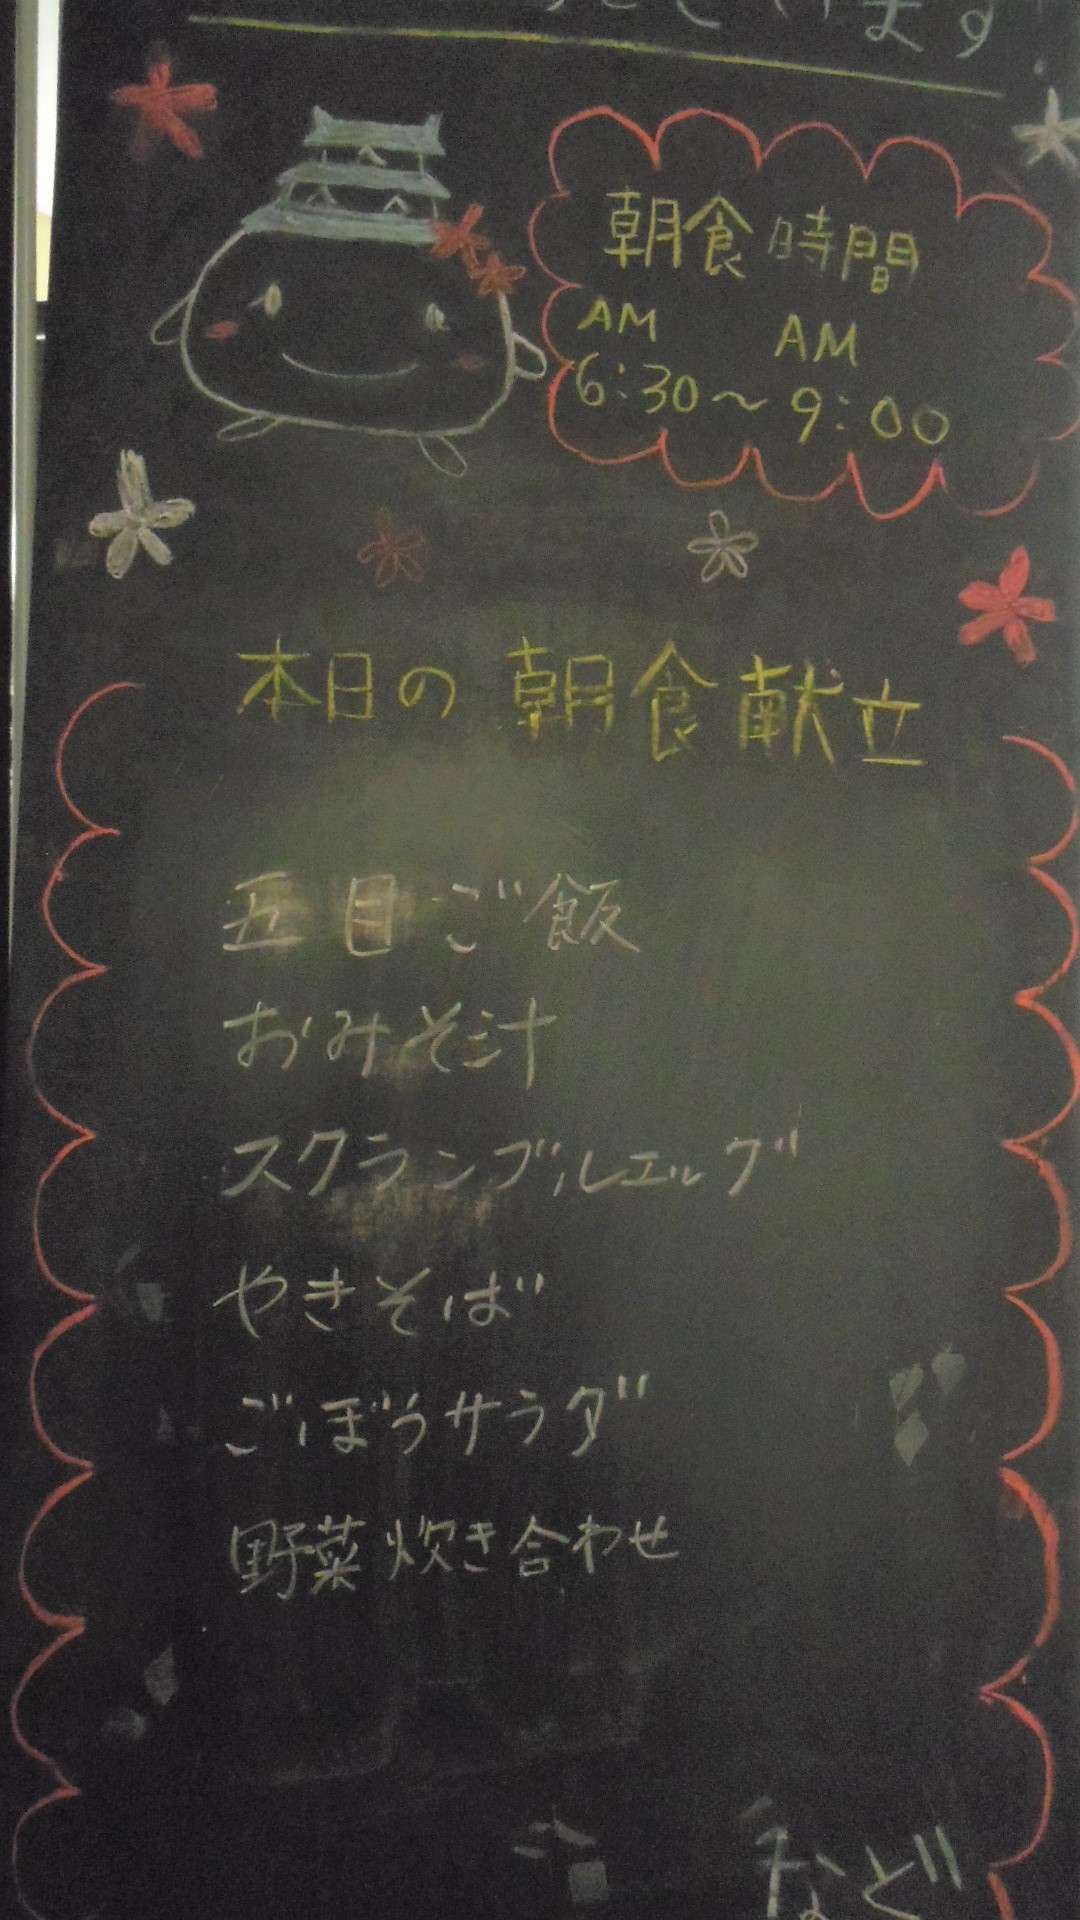 ございます!
朝食時間
AM AM
6:30~9:00
本日の朝食献立
五目ご飯
おみそ汁
スクランブルエッグ
やきそば
ごぼうサラダ
野菜炊き合わせ
など